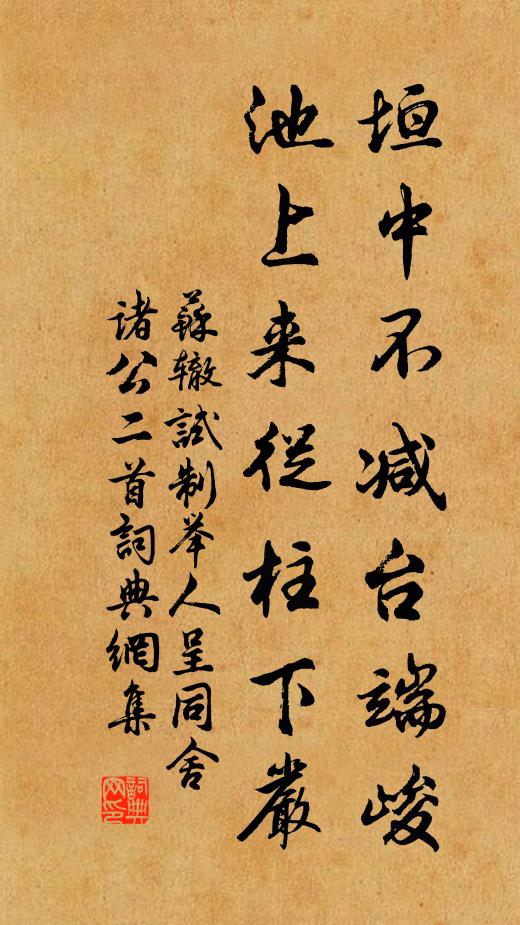 垣中不减台端峻
池上来從柱下嚴
蘇辙試制举人呈同舍
諸公二首詞典網集
詞典网印